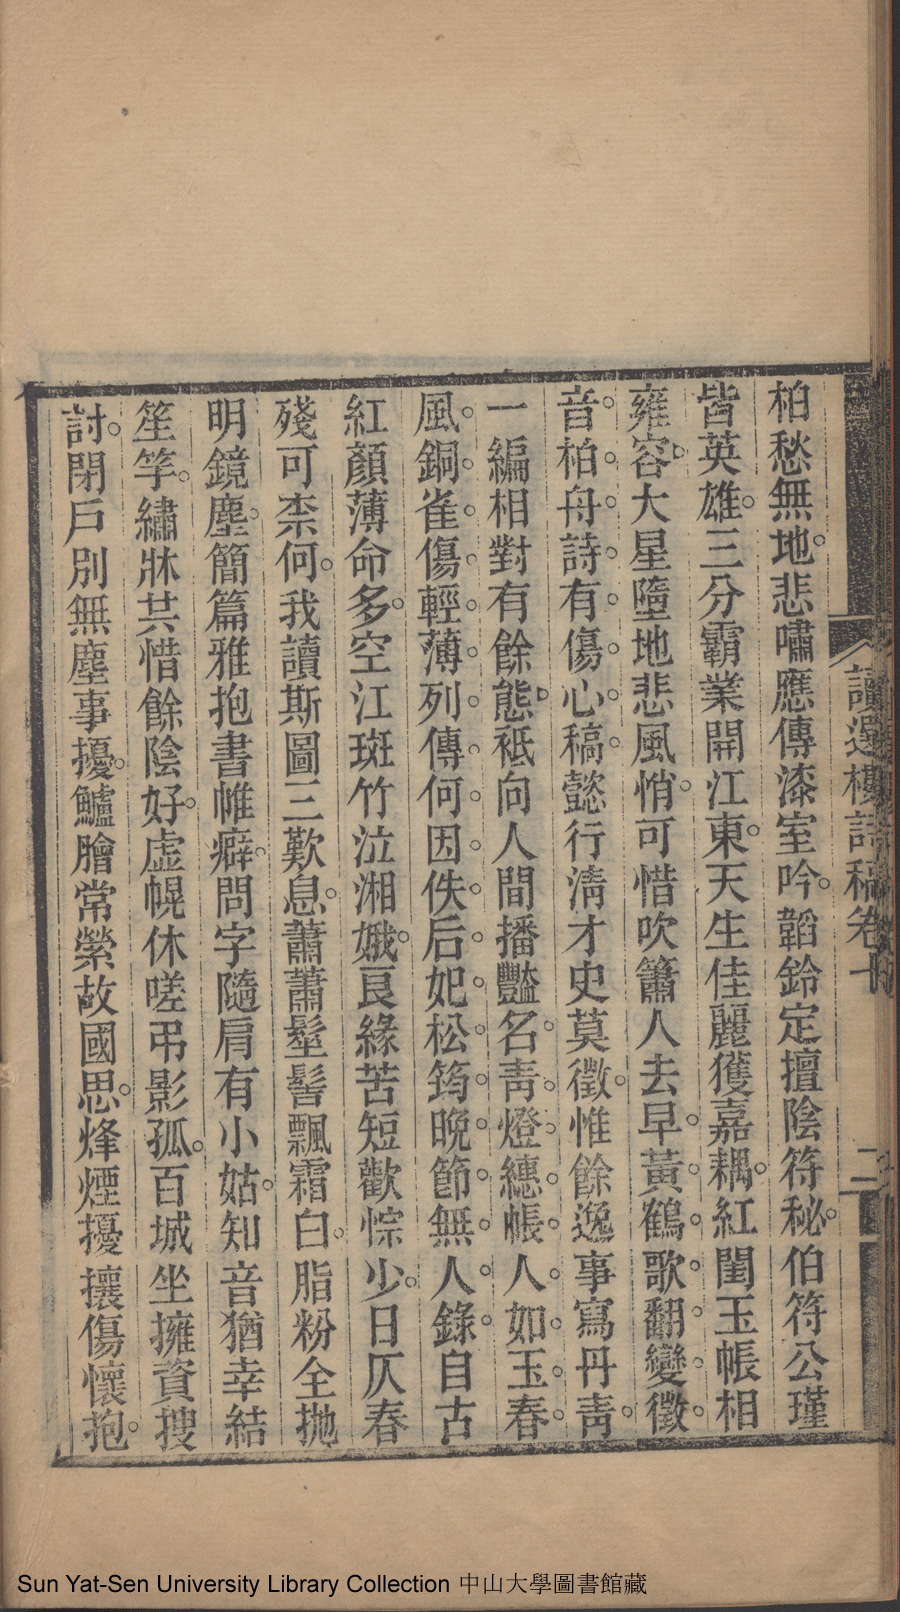 讀選樓詩稿卷十
二
柏愁無地悲嘯應傳漆室吟韜鈴定擅陰符秘伯符公瑾
皆英雄三分霸業開江東天生佳麗獲嘉耦紅閨玉帳相
雍容大星墮地悲風悄可惜吹簫人去早黃鶴歌翻變徵
音柏舟詩有傷心稿懿行淸才史莫徵惟餘逸事寫丹靑
一編相對有餘態祗向人間播豔名靑燈繐帳人如玉春
風銅雀傷輕薄列傳何因佚后妃松筠晚節無人錄自古
紅顏薄命多空江斑竹泣湘娥良緣苦短歡悰少日仄春
殘可柰何我讀斯圖三歎息蕭蕭髽髻飄霜白脂粉全拋
明鏡塵簡篇雅抱書帷癖問字隨肩有小姑知音猶幸結
笙竽繡牀共惜餘陰好虛幌休嗟弔影孤百城坐擁資搜
討閉戶別無塵事擾鱸膾常縈故國思烽煙擾攘傷懷抱
Sun Yat-Sen University Library Collection 中山大學圖書館藏